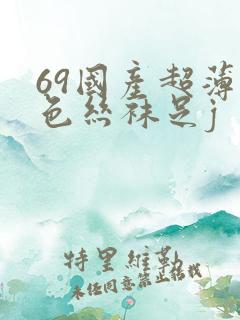 69國產超薄
色絲袜足j
特里維勒
未经同意禁止转载